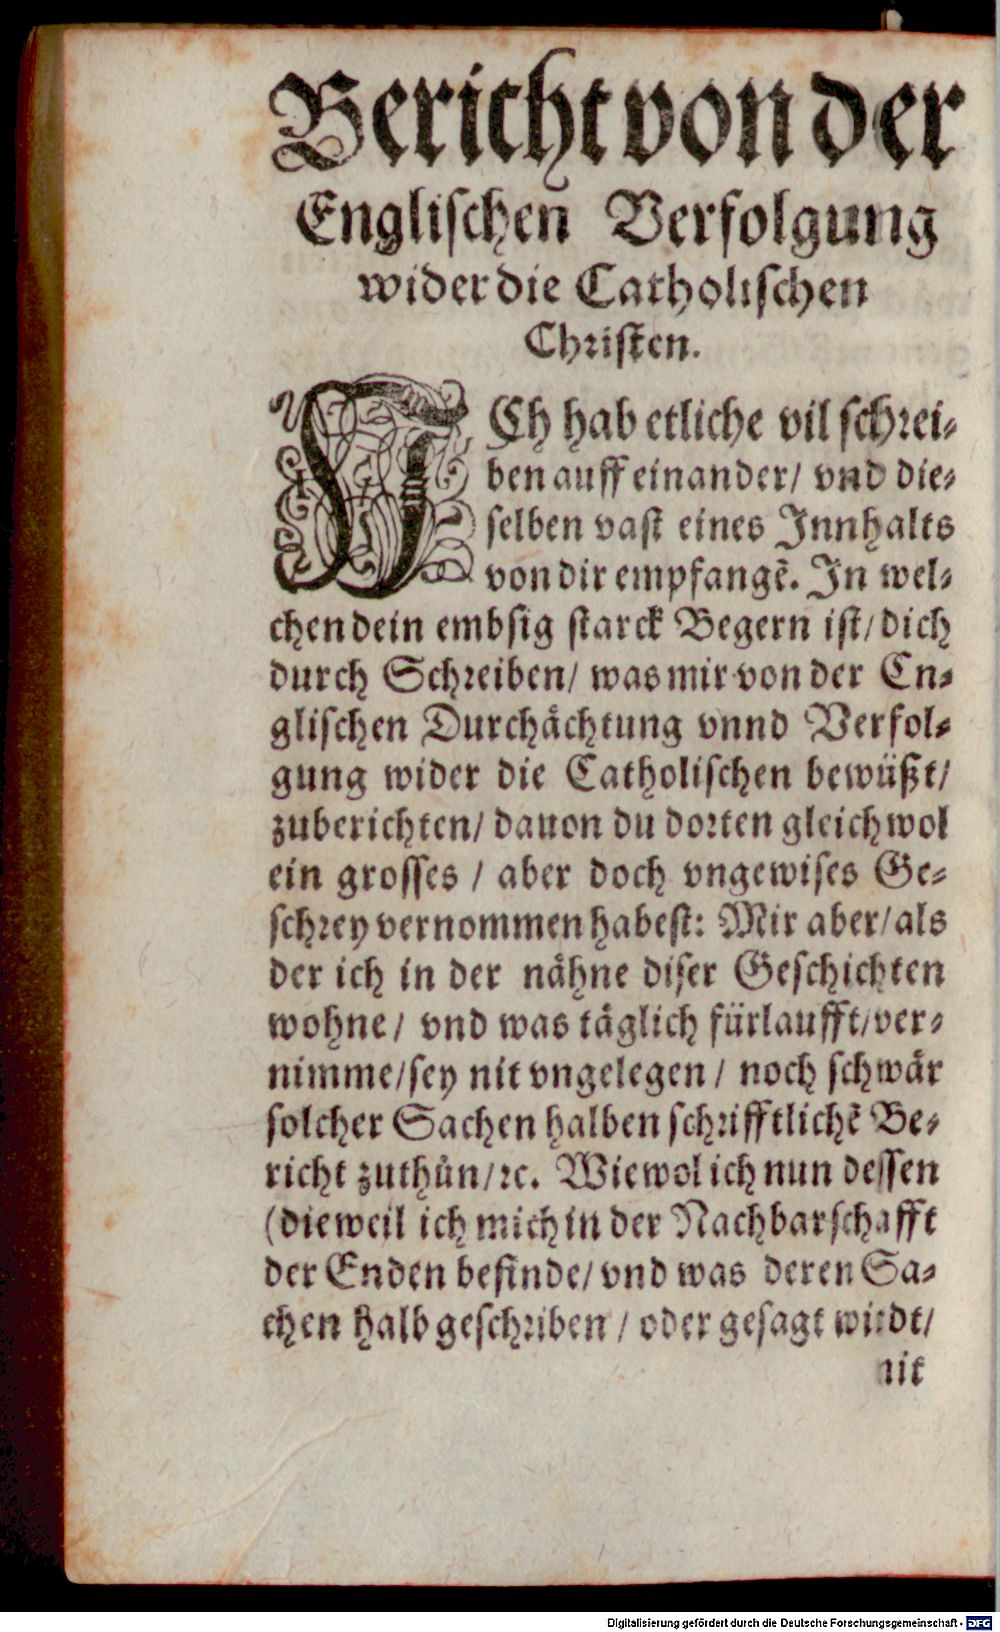 Bericht von der
Englischen Verfolgung
wider die Catholischen
Christen.
ICh hab etliche vil schrei-
ben auff einander/ vnd die-
selben vast eines Innhalts
von dir empfangẽ. In wel-
chen dein embsig starck Begern ist/ dich
durch Schreiben/ was mir von der En-
glischen Durchaͤchtung vnnd Verfol-
gung wider die Catholischen bewüßt/
zuberichten/ dauon du dorten gleichwol
ein grosses / aber doch vngewises Ge-
schrey vernommen habest: Mir aber/ als
der ich in der naͤhne diser Geschichten
wohne/ vnd was taͤglich fürlaufft/ ver-
nimme/ sey nit vngelegen / noch schwaͤr
solcher Sachen halben schrifftlichẽ Be-
richt zuthůn/ ꝛc. Wiewol ich nun dessen
(dieweil ich mich in der Nachbarschafft
der Enden befinde/ vnd was deren Sa-
chen halb geschriben / oder gesagt wirdt/
nit
Digitalisierung gefördert durch die Deutsche Forschungsgemeinschaft - DFG